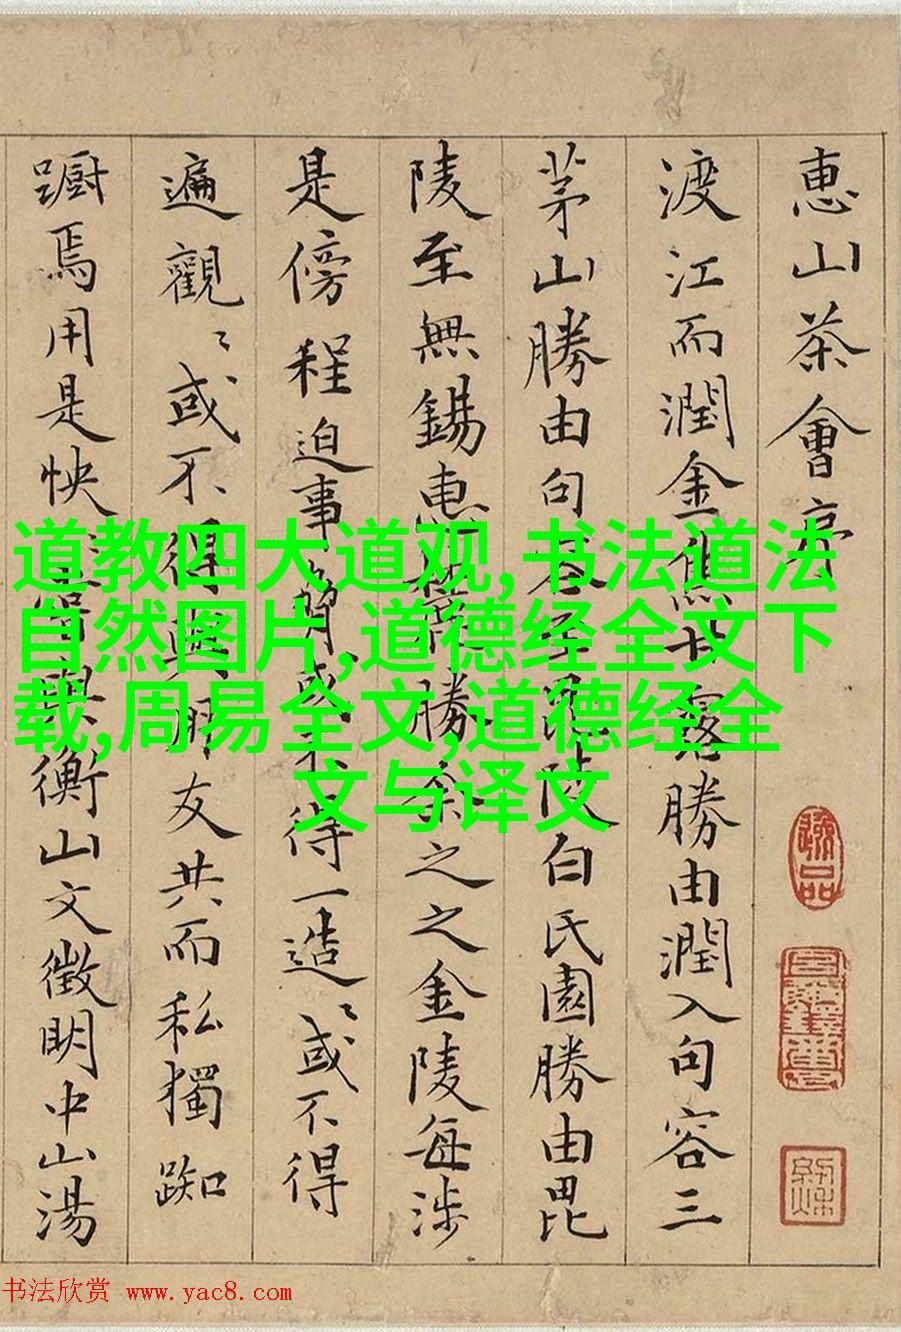 恵山茶會序
渡江而潤金焦甘露勝由潤入句容三
茅山勝由句容至毘陵白氏園勝由毘
陵至無錫恵勝余之之金陵每涉
是傍程迫事或不待一造〻或不得
遍觀〻或不得與朋友共而私獨踟
躕焉用是怏嘗與衡山文徵明中山湯
道教四大道观,书法道法
自然图片,道德经全文下
载,周易全文,道德经全
文与译文
书法欣赏 www.yac8.com